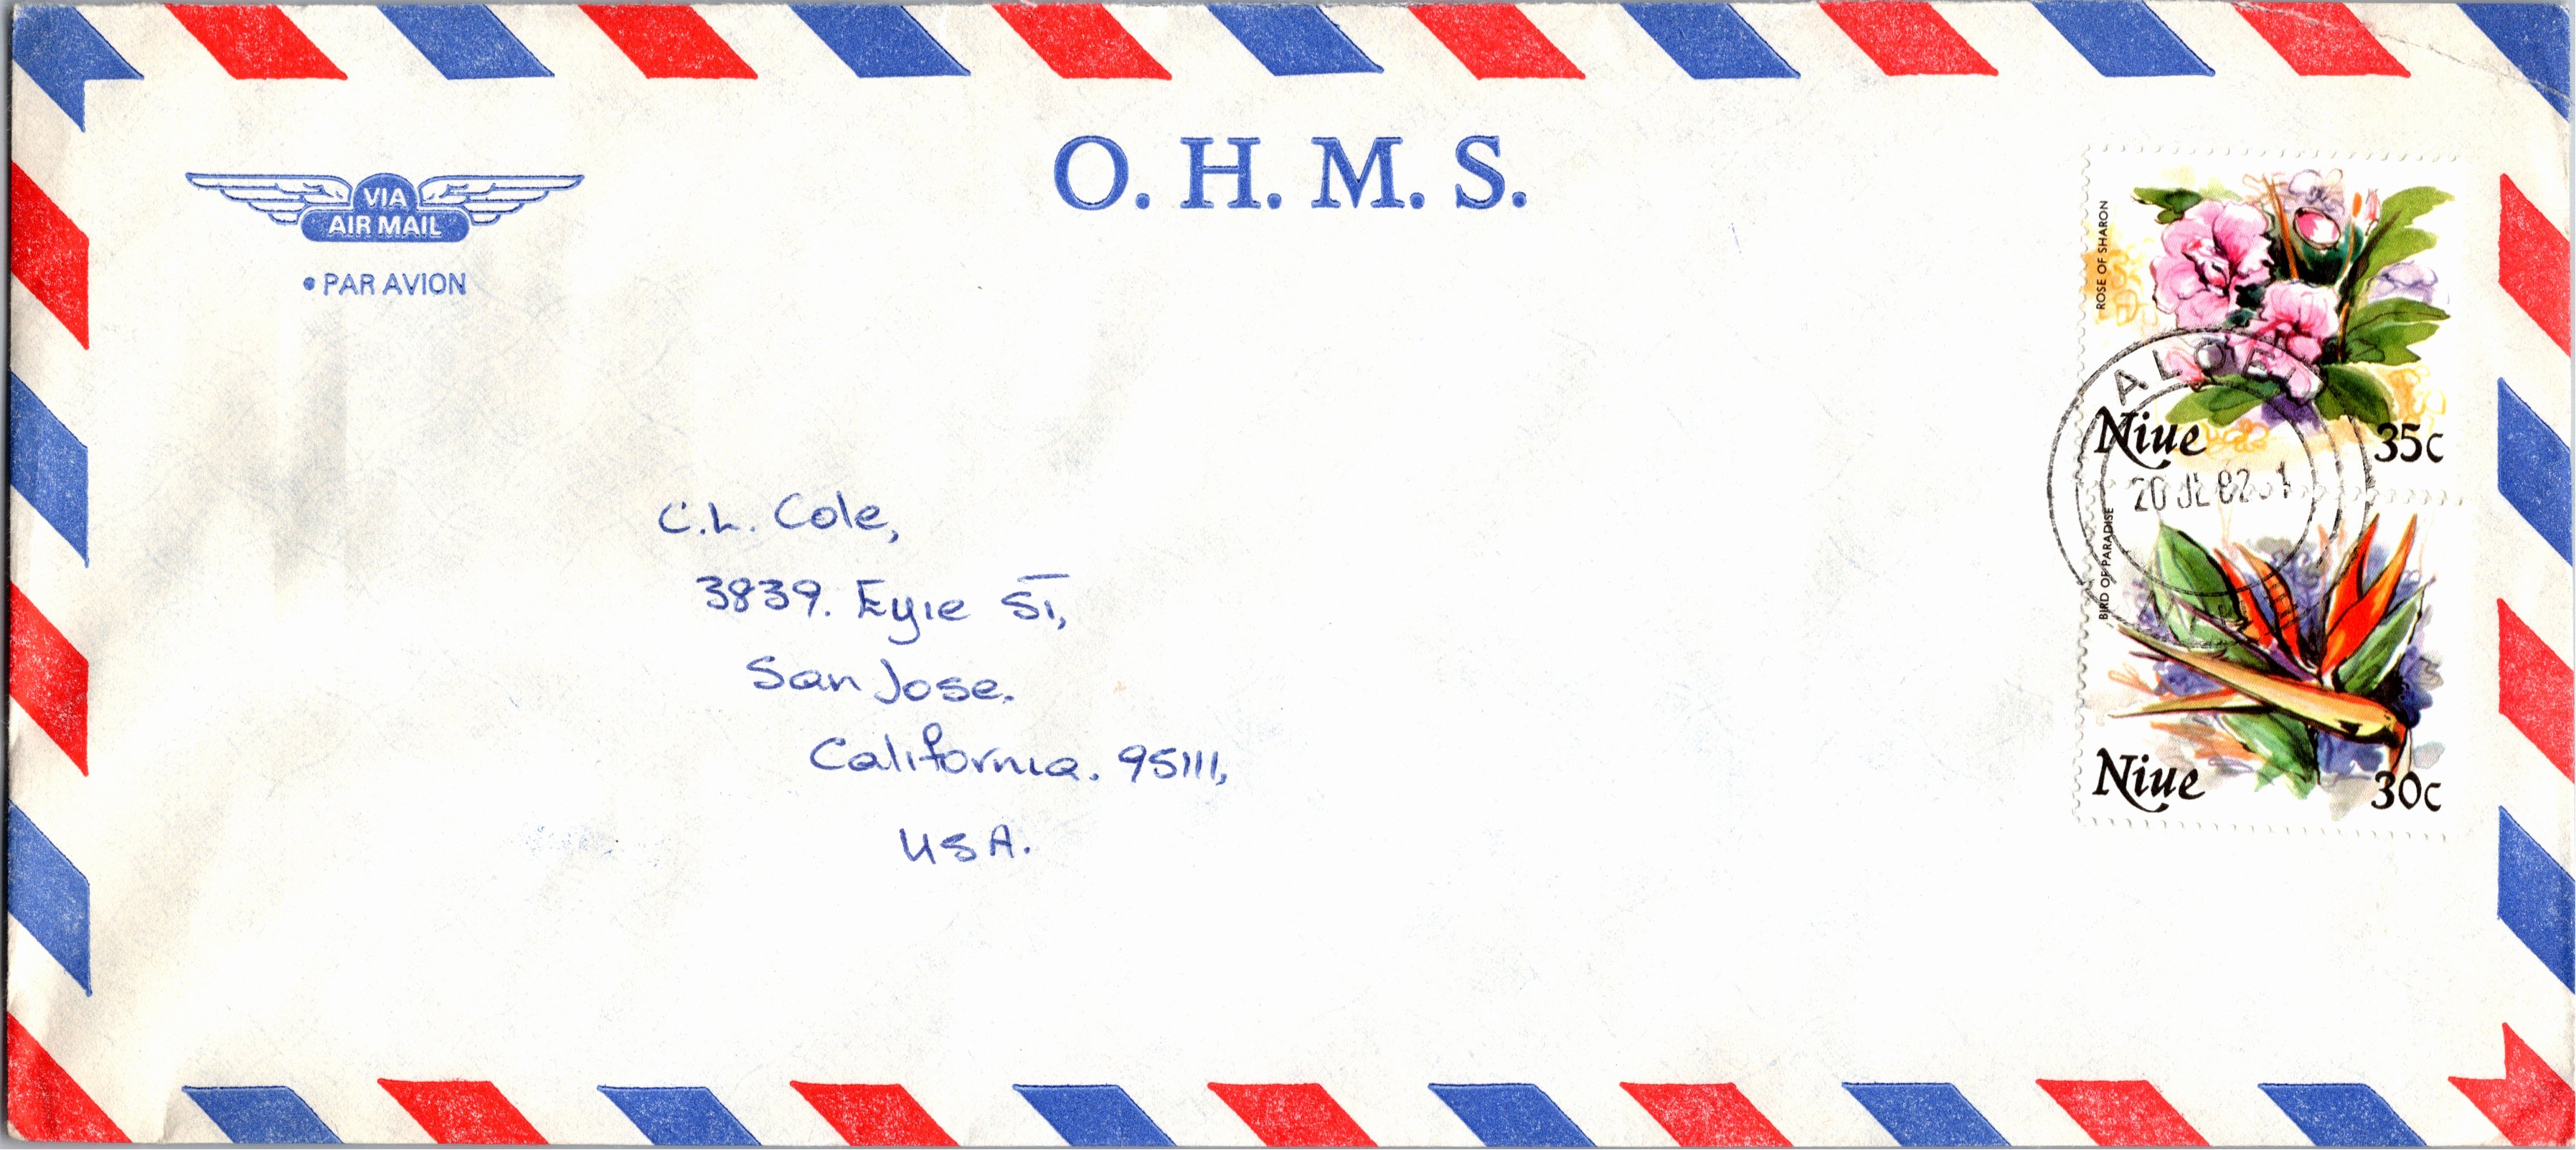 O. H. M. S.
VIA
AIR MAIL
• PAR AVION
ROSE OF SHARON
Niue
35c
ALOFI
20 JL 82
BIRD OF PARADISE
Niue
30c
C.L. Cole,
3839. Eyie St,
San Jose.
California. 95111,
USA.